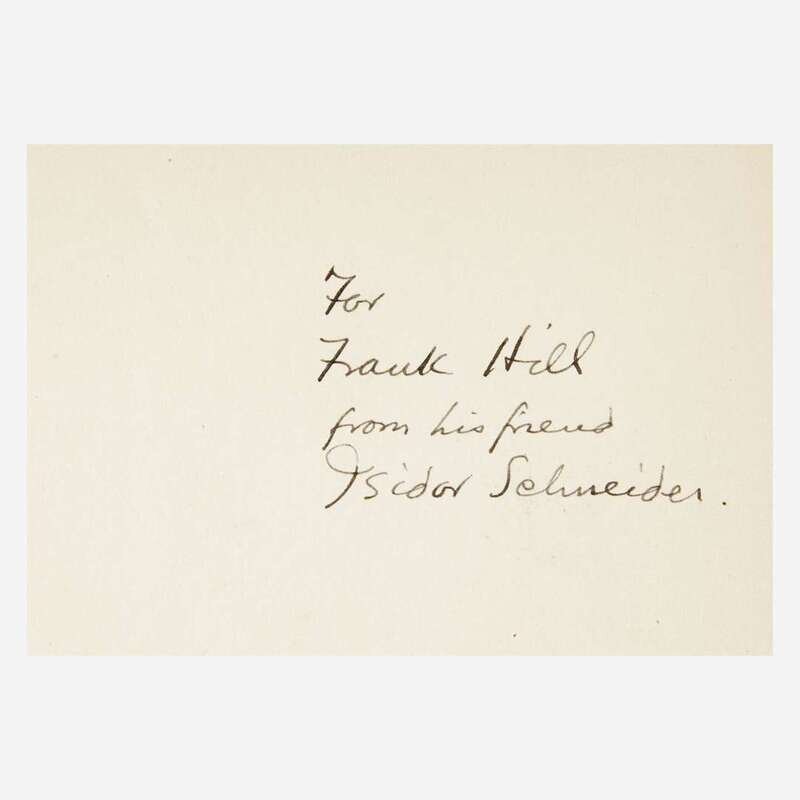 For
Frank Hill
from his friend
Isidor Schneider.